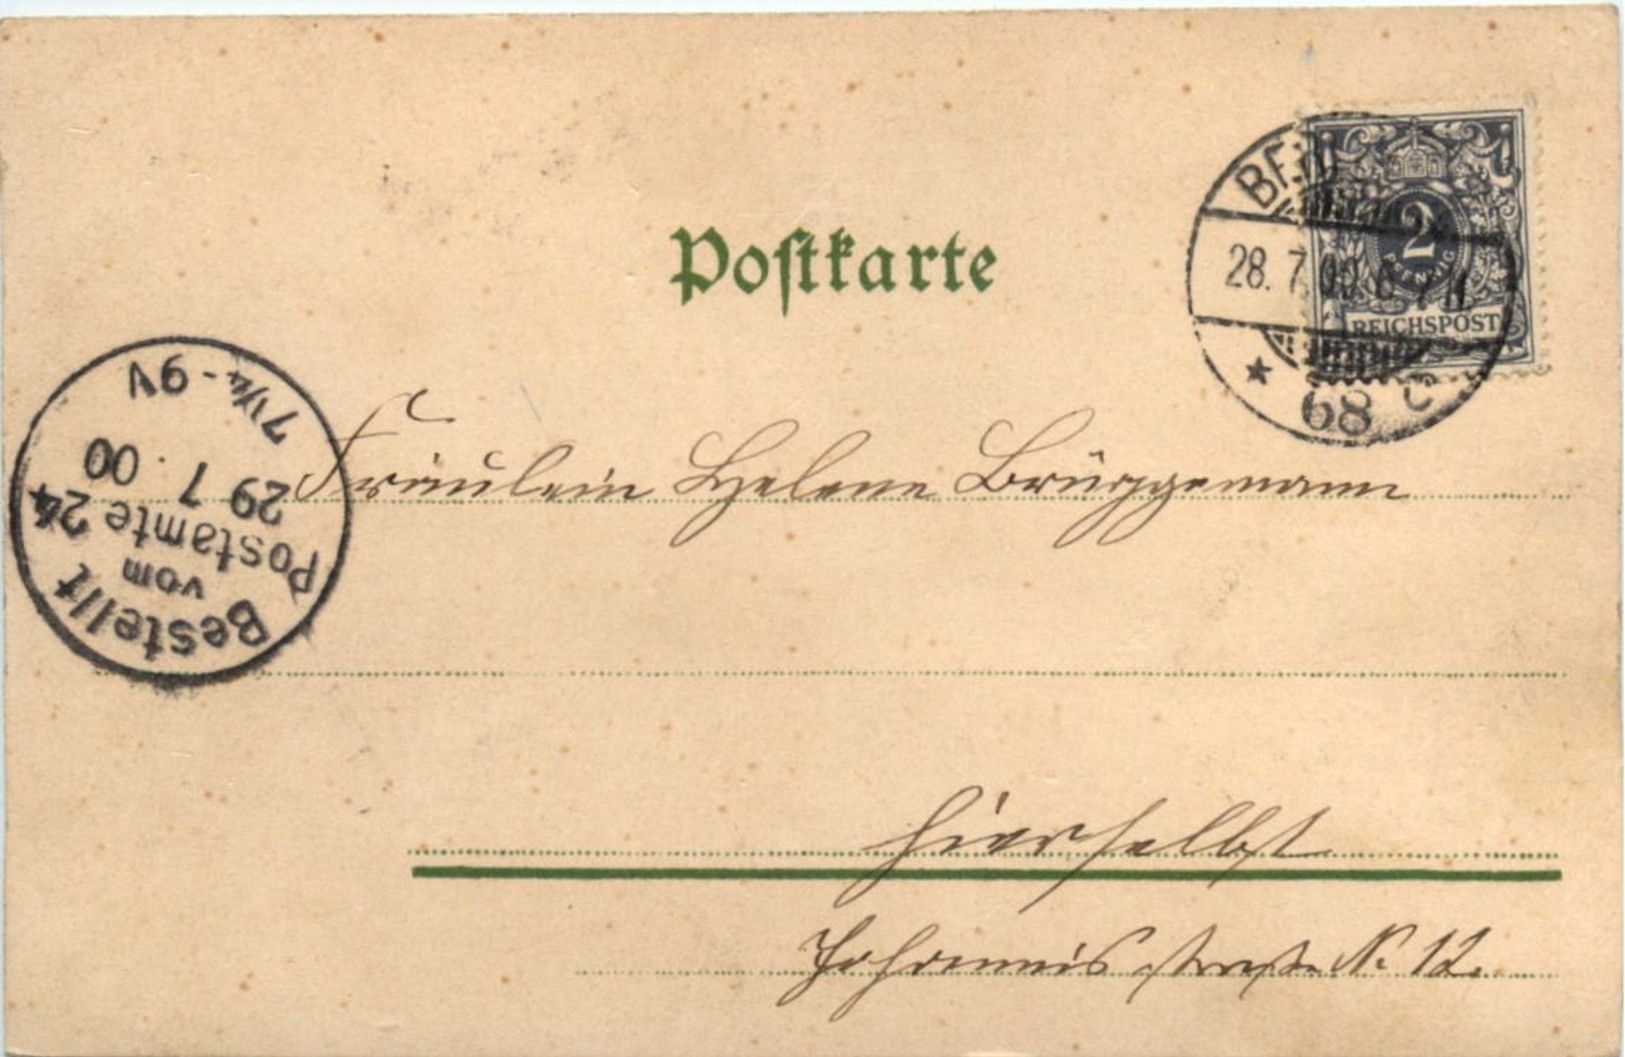 Postkarte
2
PFENNIG
REICHSPOST
28. 7. 00 6-7 N.
68 C
7 1/4 - 9V
29 7 . 00
Bestellt
vom
Postamte 24
Fräulein Helene Brüggemann
hierselbst
Johannisstraße No 12.